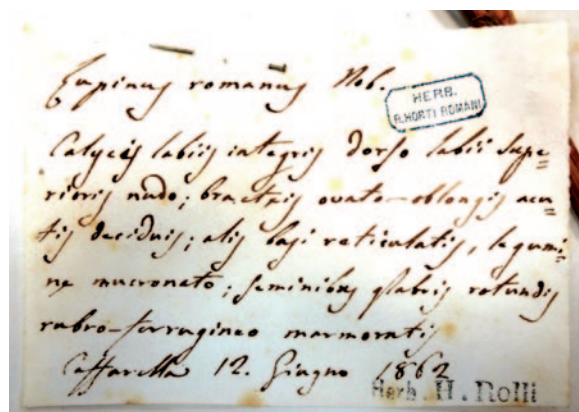 Lupinus romanus Nob.
HERB.
R. HORTI ROMANI
Calycis labiis integris dorso labii supe=
rioris nudo; bracteis ovato-oblongis acu=
tis deciduis; alis basi reticulatis, legumi=
ne mucronato; seminibus glabris rotundis
rubro-ferrugineo marmoratis
Caffarella 12. Giugno 1862
Herb. H. Rolli